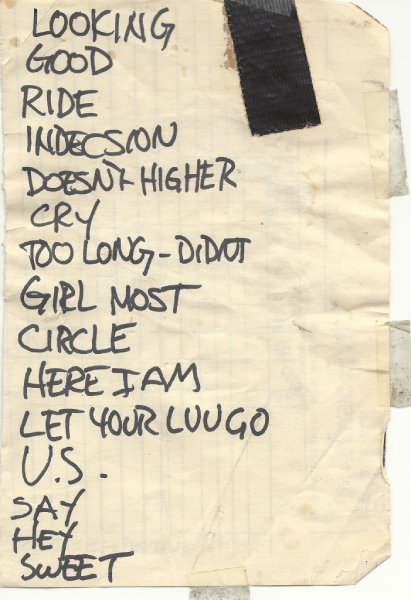 LOOKING
GOOD
RIDE
INDECSION
DOESN'T HIGHER
CRY
TOO LONG - DIDNT
GIRL MOST
CIRCLE
HERE I AM
LET YOUR LUU GO
U.S.
SAY
HEY
SWEET